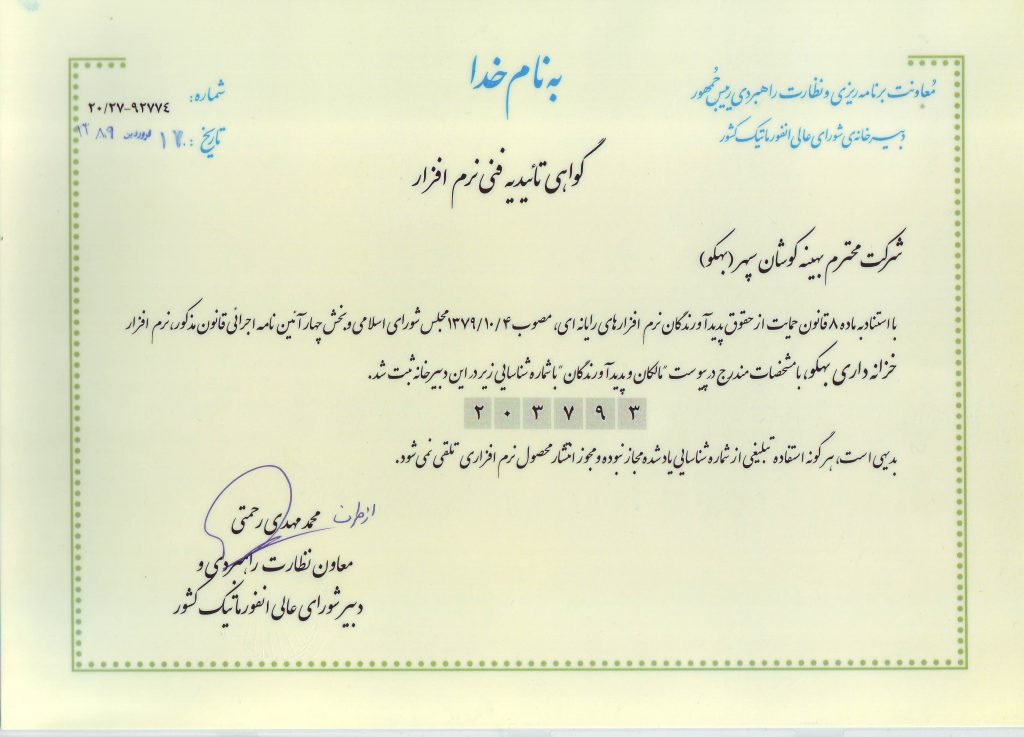 به نام خدا
معاونت برنامه ریزی و نظارت راهبردی رییس جمهور
دبیرخانه‌ی شورای عالی انفورماتیک کشور
شماره:
۲۰/۲۷-۹۲۷۷۴
تاریخ: ۱۷ فروردین ۱۳۸۹
گواهی تائیدیه فنی نرم افزار
شرکت محترم بهینه کوشان سپهر (بهکو)
با استناد به ماده ۸ قانون حمایت از حقوق پدیدآورندگان نرم افزارهای رایانه ای، مصوب ۱۳۷۹/۱۰/۴ مجلس شورای اسلامی و بخش چهار آئین نامه اجرائی قانون مذکور، نرم افزار
خزانه داری بهکو، با مشخصات مندرج در پیوست "مالکان و پدیدآورندگان" با شماره شناسایی زیر در این دبیرخانه ثبت شد.
۲ ۰ ۳ ۷ ۹ ۳
بدیهی است، هرگونه استفاده تبلیغی از شماره شناسایی یاد شده مجاز نبوده و مجوز انتشار محصول نرم افزاری تلقی نمی شود.
از طرف محمد مهدی رحمتی
معاون نظارت راهبردی و
دبیر شورای عالی انفورماتیک کشور